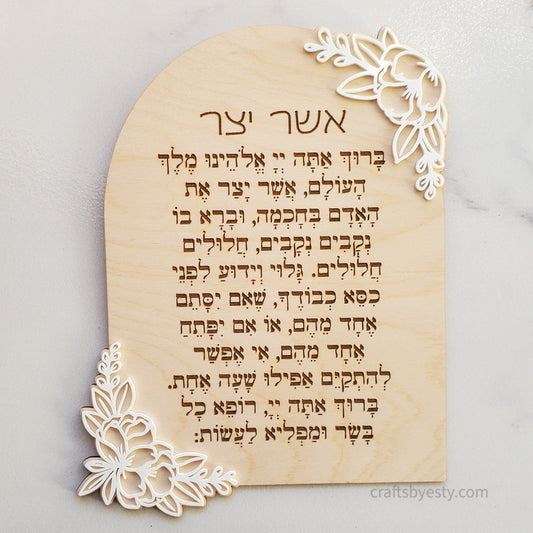 אשר יצר
בָּרוּךְ אַתָּה יְיָ אֱלֹהֵינוּ מֶלֶךְ
הָעוֹלָם, אֲשֶׁר יָצַר אֶת
הָאָדָם בְּחָכְמָה, וּבָרָא בוֹ
נְקָבִים נְקָבִים, חֲלוּלִים
חֲלוּלִים. גָּלוּי וְיָדוּעַ לִפְנֵי
כִסֵּא כְבוֹדֶךָ, שֶׁאִם יִסָּתֵם
אֶחָד מֵהֶם, אוֹ אִם יִפָּתֵחַ
אֶחָד מֵהֶם, אִי אֶפְשַׁר
לְהִתְקַיֵּם אֲפִילוּ שָׁעָה אֶחָת.
בָּרוּךְ אַתָּה יְיָ, רוֹפֵא כָל
בָּשָׂר וּמַפְלִיא לַעֲשׂוֹת:
craftsbyesty.com